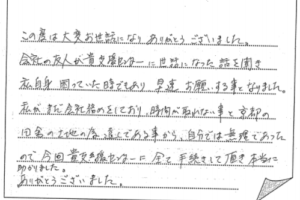 この度は大変お世話になり ありがとうございました。
会社の友人が貴支援センターに世話になった話を聞き
私自身 困っていた時でもあり、早速 お願いする事となりました。
私がまだ会社勤めをしており、時間が取れない事と京都の
田舎の土地の為 遠方である事から、自分では無理であった
ので今回貴支援センターに全て手続きして頂き本当に
助かりました。
ありがとうございました。